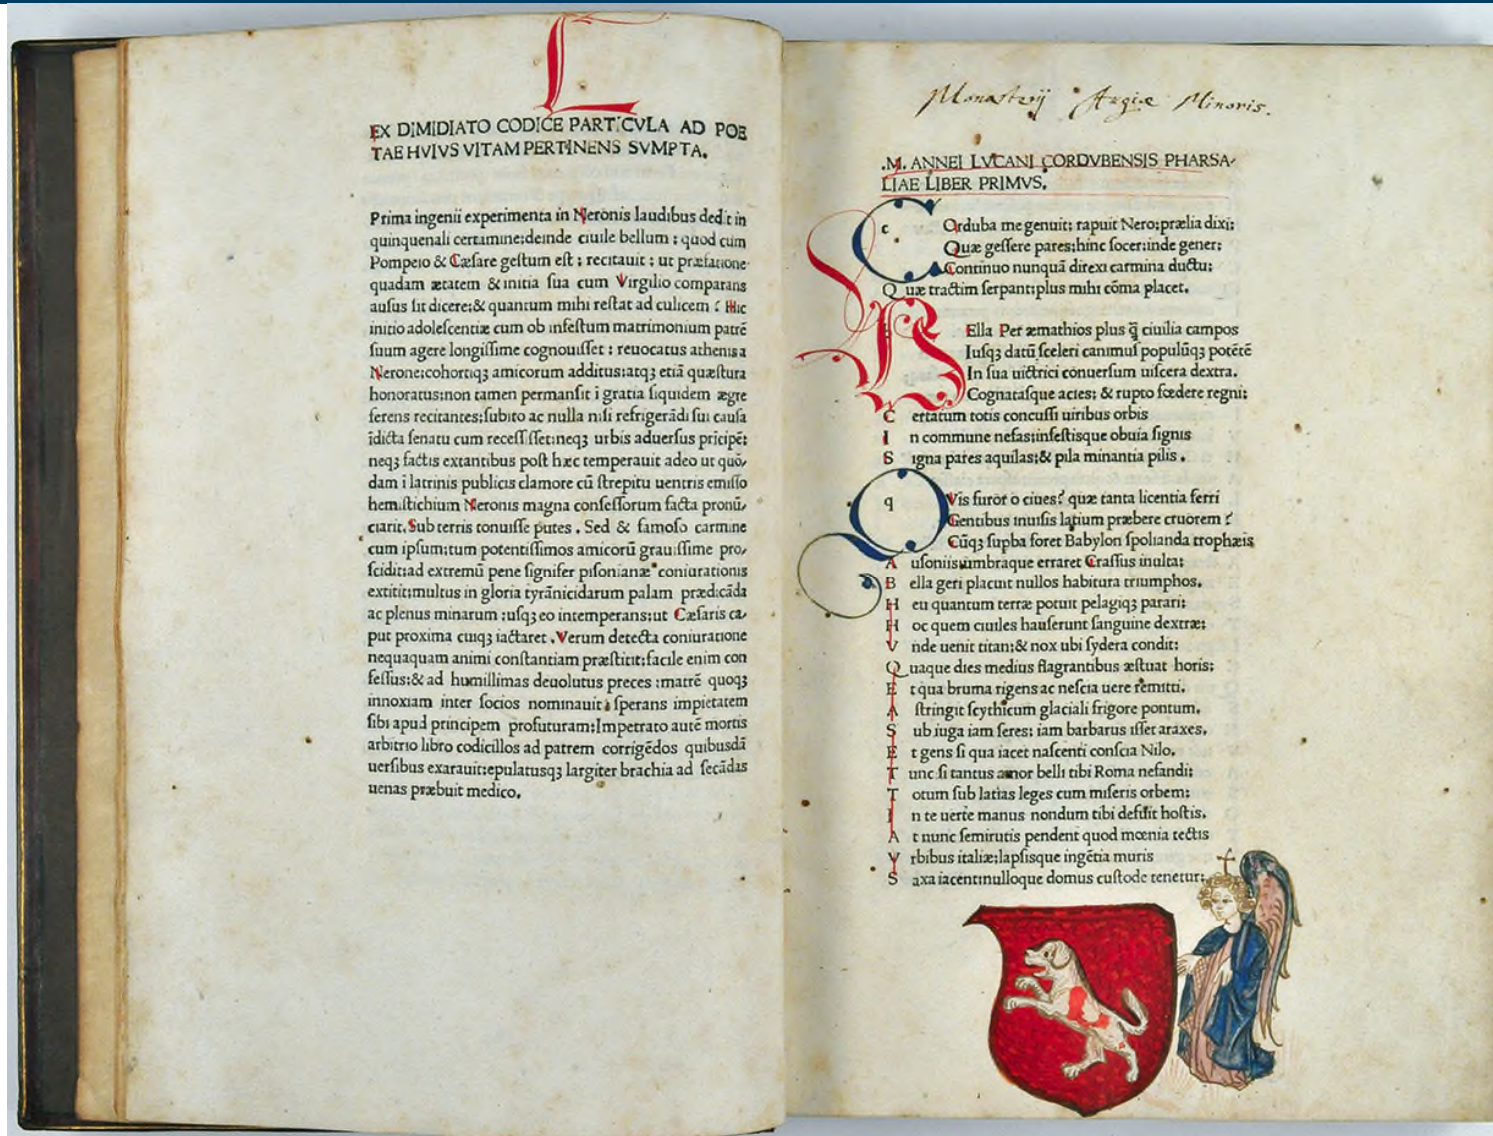 EX DIMIDIATO CODICE PARTICVLA AD POE
TAE HVIVS VITAM PERTINENS SVMPTA.
Prima ingenii experimenta in Neronis laudibus dedit in
quinquenali certamine:deinde ciuile bellum : quod cum
Pompeio & Cæsare gestum est : recitauit : ut præfatione
quadam ætatem & initia sua cum Virgilio comparans
ausus sit dicere:& quantum mihi restat ad culicem ? Hic
initio adolescentiæ cum ob infestum matrimonium patrē
suum agere longissime cognouisset : reuocatus athenis a
Nerone:cohortiqꝫ amicorum additus:atqꝫ etiā quæstura
honoratus:non tamen permansit ī gratia siquidem ægre
ferens recitantes:subito ac nulla nisi refrigerādi sui causa
īdicta senatu cum recessisset:neqꝫ urbis aduersus prīcipē:
neqꝫ factis extantibus post hæc temperauit adeo ut quō/
dam ī latrinis publicis clamore cū strepitu uentris emisso
hemistichium Neronis magna consessorum facta pronū/
ciarit. Sub terris tonuisse putes . Sed & famoso carmine
cum ipsum:tum potentissimos amicorū grauissime pro/
scidit:ad extremū pene signifer pisonianæ coniurationis
extitit:multus in gloria tyrānicidarum palam prædicāda
ac plenus minarum :usqꝫ eo intemperans:ut Cæsaris ca/
put proxima cuiqꝫ iactaret . Verum detecta coniuratione
nequaquam animi constantiam præstitit:facile enim con
fessus:& ad humillimas deuolutus preces :matrē quoqꝫ
innoxiam inter socios nominauit: sperans impietatem
sibi apud principem profuturam:Impetrato autē mortis
arbitrio libro codicillos ad patrem corrigēdos quibusdā
uersibus exarauit:epulatusqꝫ largiter brachia ad secādas
uenas præbuit medico.
Monasterij Augiæ Minoris.
.M. ANNEI LVCANI CORDVBENSIS PHARSA/
LIAE LIBER PRIMVS.
COrduba me genuit: rapuit Nero:prælia dixi:
Quæ gessere pares:hinc socer:inde gener:
Continuo nunquā direxi carmina ductu:
Quæ tractim serpant:plus mihi cōma placet.
BElla Per æmathios plus q̄ ciuilia campos
Iusqꝫ datū sceleri canimus populūqꝫ potētē
In sua uictrici conuersum uiscera dextra.
Cognatasque acies: & rupto fœdere regni:
Certatum totis concussi uiribus orbis
In commune nefas:infestisque obuia signis
Signa pares aquilas:& pila minantia pilis .
QVis furor o ciues? quæ tanta licentia ferri
Gentibus inuisis latium præbere cruorem ?
Cūqꝫ supba foret Babylon spolianda trophæis
Ausoniis:umbraque erraret Crassus inulta:
Bella geri placuit nullos habitura triumphos.
Heu quantum terræ potuit pelagiqꝫ parari:
Hoc quem ciuiles hauserunt sanguine dextræ:
Vnde uenit titan:& nox ubi sydera condit:
Quaque dies medius flagrantibus æstuat horis:
Et qua bruma rigens ac nescia uere remitti.
Astringit scythicum glaciali frigore pontum.
Sub iuga iam seres: iam barbarus isset araxes.
Et gens si qua iacet nascenti conscia Nilo.
Tunc si tantus amor belli tibi Roma nefandi:
Totum sub latias leges cum miseris orbem:
In te uerte manus nondum tibi defuit hostis.
At nunc semirutis pendent quod mœnia tectis
Vrbibus italiæ:lapsisque ingētia muris
Saxa iacent:nulloque domus custode tenetur: